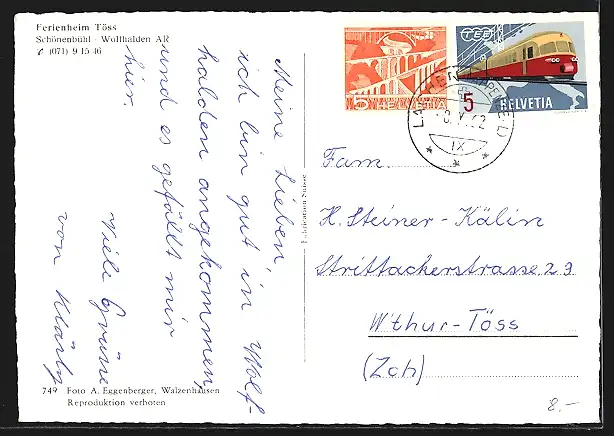 Ferienheim Töss
Schönenbühl - Wolfhalden AR
✆ (071) 9 15 46
Meine Lieben,
ich bin gut in Wolf-
halden angekommen,
und es gefällt mir
hier.
Viele Grüsse
von Klärly
749 Foto A. Eggenberger, Walzenhausen
Reproduktion verboten
Fabrication Suisse
5 HELVETIA
TEE
5 HELVETIA
IX
Fam.
H. Steiner-Kälin
Strittackerstrasse 23
W'thur-Töss
(Zch)
8.-